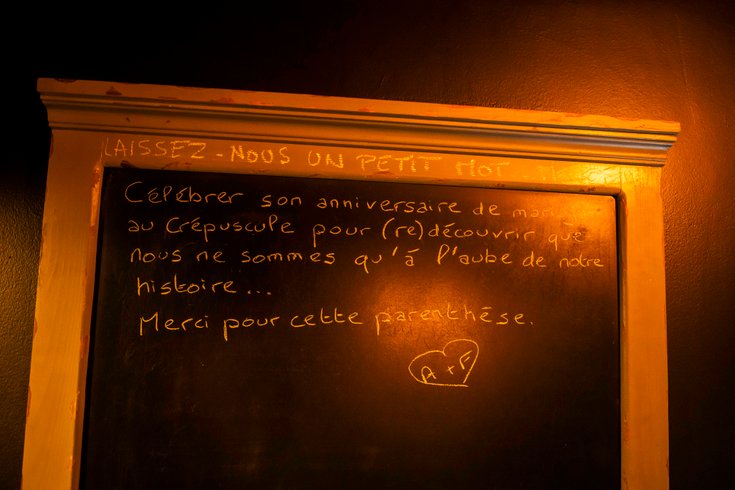 LAISSEZ-NOUS UN PETIT MOT
Célébrer son anniversaire de
au Crépuscule pour (re)découvrir que
nous ne sommes qu'à l'aube de notre
histoire...
Merci pour cette parenthèse.
A + F